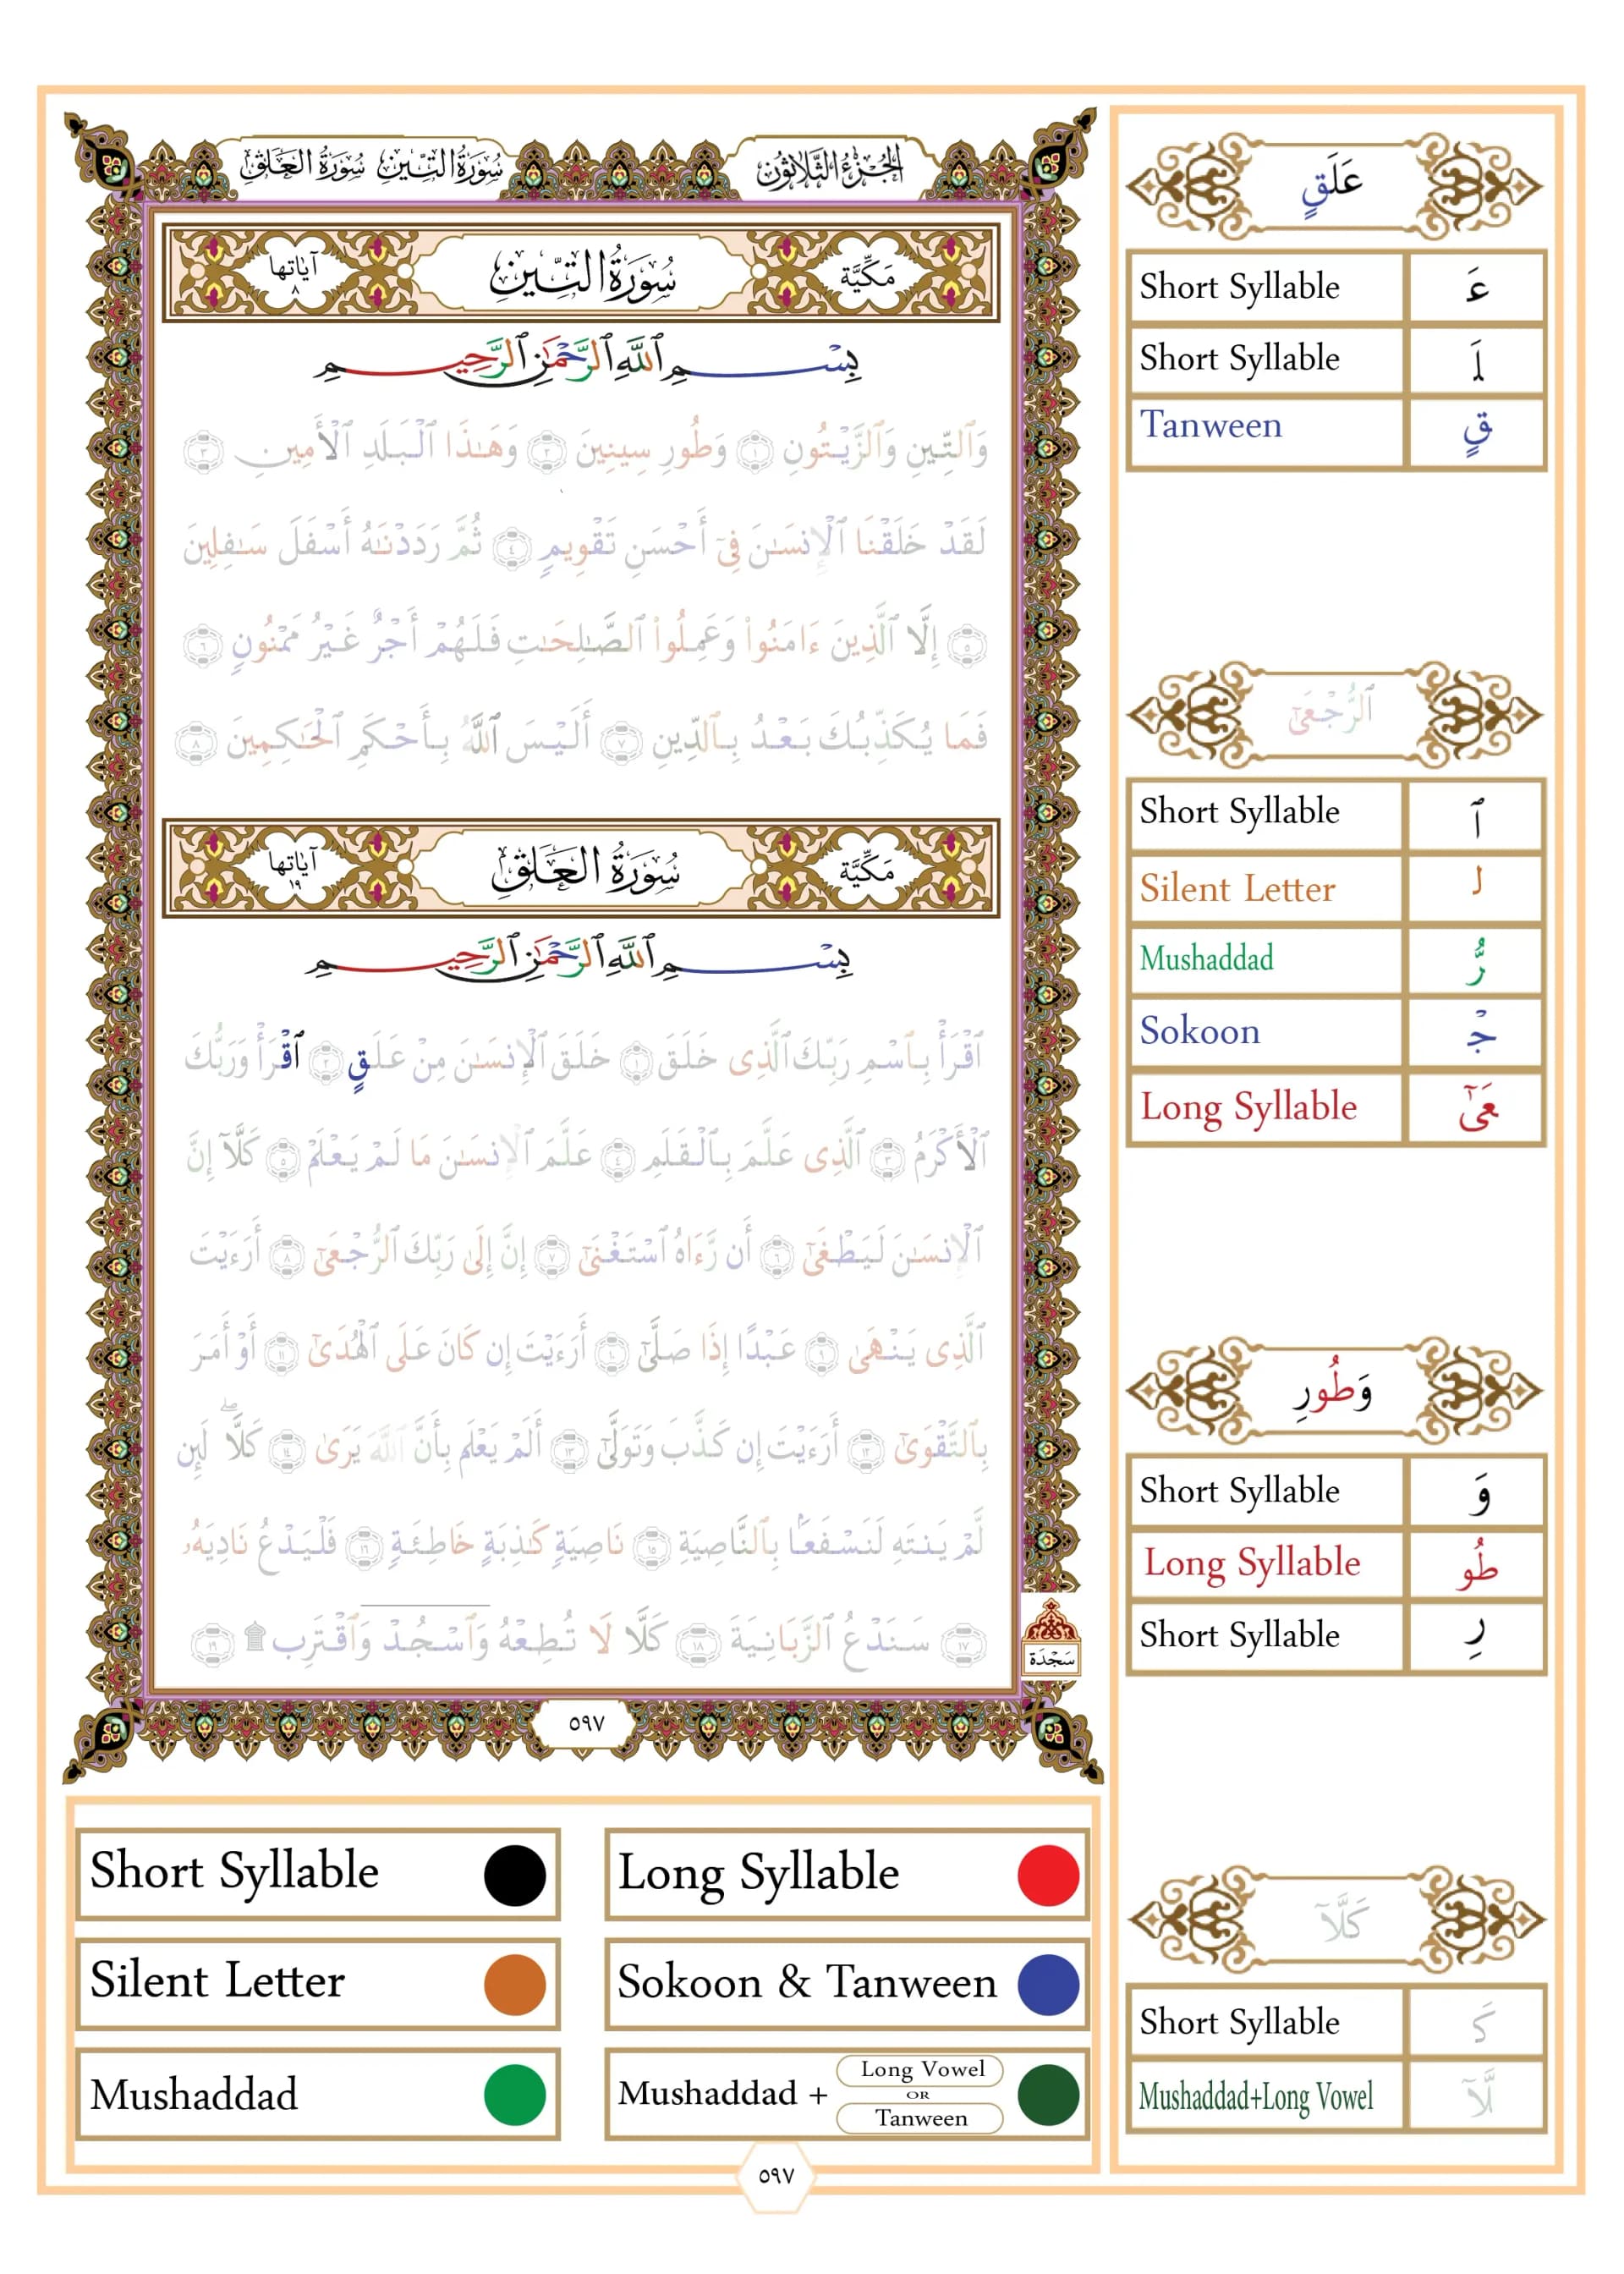 الجزء الثلاثون
سورة التين سورة العلق
مكية
سورة التين
آياتها ٨
بِسْمِ ٱللَّهِ ٱلرَّحْمَٰنِ ٱلرَّحِيمِ
وَٱلتِّينِ وَٱلزَّيْتُونِ ١ وَطُورِ سِينِينَ ٢ وَهَٰذَا ٱلْبَلَدِ ٱلْأَمِينِ ٣
لَقَدْ خَلَقْنَا ٱلْإِنسَٰنَ فِىٓ أَحْسَنِ تَقْوِيمٍ ٤ ثُمَّ رَدَدْنَٰهُ أَسْفَلَ سَٰفِلِينَ
٥ إِلَّا ٱلَّذِينَ ءَامَنُوا۟ وَعَمِلُوا۟ ٱلصَّٰلِحَٰتِ فَلَهُمْ أَجْرٌ غَيْرُ مَمْنُونٍ ٦
فَمَا يُكَذِّبُكَ بَعْدُ بِٱلدِّينِ ٧ أَلَيْسَ ٱللَّهُ بِأَحْكَمِ ٱلْحَٰكِمِينَ ٨
مكية
سورة العلق
آياتها ١٩
بِسْمِ ٱللَّهِ ٱلرَّحْمَٰنِ ٱلرَّحِيمِ
ٱقْرَأْ بِٱسْمِ رَبِّكَ ٱلَّذِى خَلَقَ ١ خَلَقَ ٱلْإِنسَٰنَ مِنْ عَلَقٍ ٢ ٱقْرَأْ وَرَبُّكَ
ٱلْأَكْرَمُ ٣ ٱلَّذِى عَلَّمَ بِٱلْقَلَمِ ٤ عَلَّمَ ٱلْإِنسَٰنَ مَا لَمْ يَعْلَمْ ٥ كَلَّآ إِنَّ
ٱلْإِنسَٰنَ لَيَطْغَىٰٓ ٦ أَن رَّءَاهُ ٱسْتَغْنَىٰٓ ٧ إِنَّ إِلَىٰ رَبِّكَ ٱلرُّجْعَىٰٓ ٨ أَرَءَيْتَ
ٱلَّذِى يَنْهَىٰ ٩ عَبْدًا إِذَا صَلَّىٰٓ ١٠ أَرَءَيْتَ إِن كَانَ عَلَى ٱلْهُدَىٰٓ ١١ أَوْ أَمَرَ
بِٱلتَّقْوَىٰٓ ١٢ أَرَءَيْتَ إِن كَذَّبَ وَتَوَلَّىٰٓ ١٣ أَلَمْ يَعْلَم بِأَنَّ ٱللَّهَ يَرَىٰ ١٤ كَلَّا لَئِن
لَّمْ يَنتَهِ لَنَسْفَعًۢا بِٱلنَّاصِيَةِ ١٥ نَاصِيَةٍ كَٰذِبَةٍ خَاطِئَةٍ ١٦ فَلْيَدْعُ نَادِيَهُۥ
١٧ سَنَدْعُ ٱلزَّبَانِيَةَ ١٨ كَلَّا لَا تُطِعْهُ وَٱسْجُدْ وَٱقْتَرِب ۩ ١٩
سجدة
٥٩٧
عَلَقٍ
Short Syllable عَ
Short Syllable لَ
Tanween قٍ
ٱلرُّجْعَىٰٓ
Short Syllable ٱ
Silent Letter ل
Mushaddad رُّ
Sokoon جْ
Long Syllable عَىٰٓ
وَطُورِ
Short Syllable وَ
Long Syllable طُو
Short Syllable رِ
كَلَّآ
Short Syllable كَ
Mushaddad+Long Vowel لَّآ
Short Syllable
Long Syllable
Silent Letter
Sokoon & Tanween
Mushaddad
Mushaddad + Long Vowel OR Tanween
٥٩٧